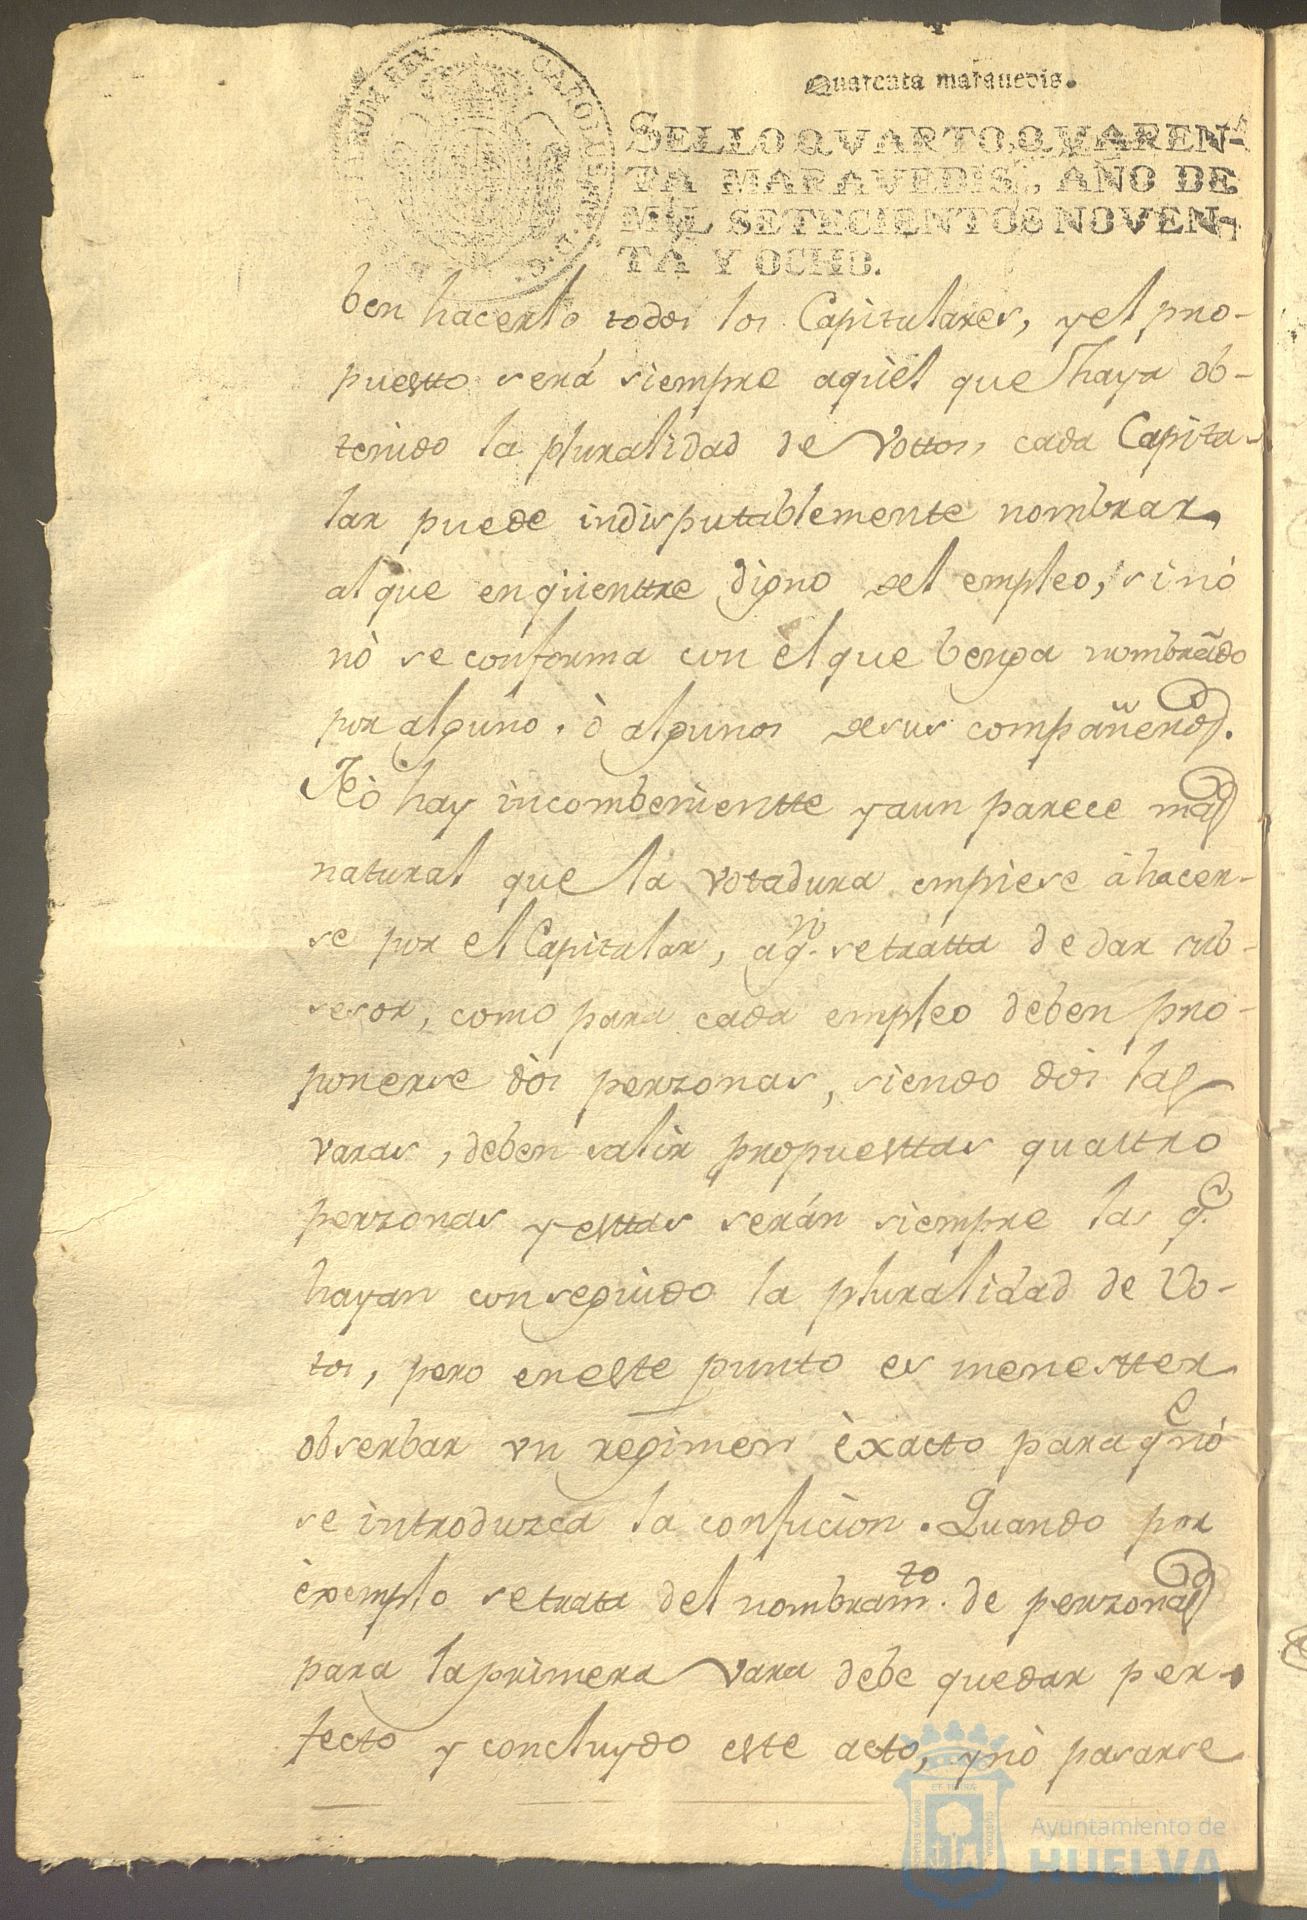 Quarenta marauedis.
SELLO QVARTO, QVAREN-
TA MARAVEDIS, AÑO DE
MIL SETECIENTOS NOVEN-
TA Y OCHO.
CAROLUS IV. D.G. HISPANIARUM REX
ben hacerlo todos los Capitulares, y el pro-
puestto será siempre aquèl que haya ob-
tenido la pluralidad de Vottos, cada Capitu-
lar puede indisputablemente nombrar
al que enqüenttre digno del empleo, si nó
nò se conforma con èl que benga nombrado
por alguno. ò algunos de sus compañeros.
Nò hay incombenientte y aun parece mas
natural que la votadura empiese à hacer-
se por el Capitular, a qn. se tratta de dar sub-
sesor, como para cada empleo deben pro-
ponerse dòs perzonas, siendo dòs las
varas, deben salir propuesttas quattro
perzonas y esttas serán siempre las qe.
hayan conseguido la pluralidad de Vo-
tos, pero en este punto es menestter
obserbar vn regimen èxacto para qe nó
se introduzca la confucion. Quando por
èxemplo se trata del nombramto. de perzonas
para la primera vara debe quedar per-
fecto y concluydo este acto, y nò pasarse
Ayuntamiento de
HUELVA